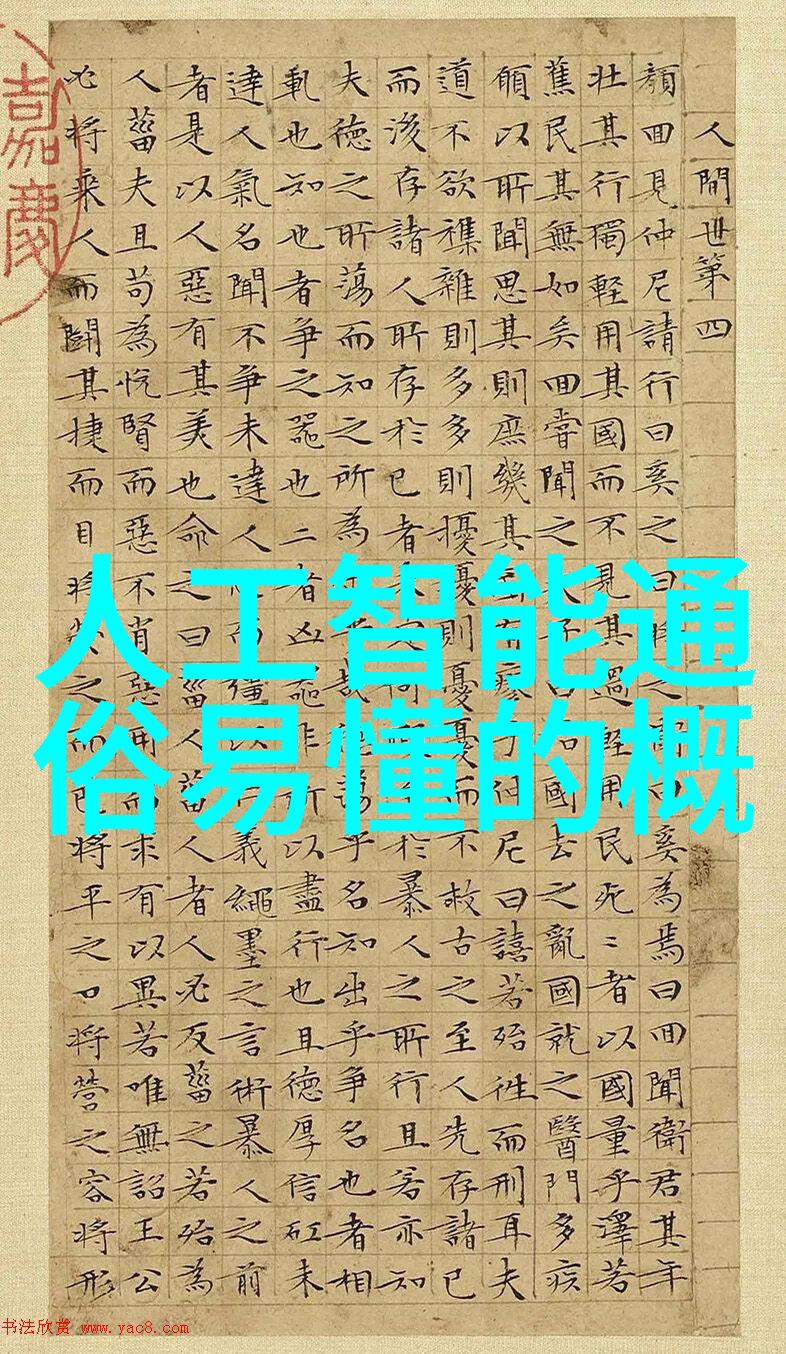 人間世第四
顏回見仲尼請行曰奚之曰將之衛曰奚為焉曰回聞衛君其年
壯其行獨輕用其國而不見其過輕用民死〻者以國量乎澤若
蕉民其無如矣回嘗聞之夫子曰治國去之亂國就之醫門多疾
願以所聞思其則庶幾其國有瘳乎仲尼曰譆若殆往而刑耳夫
道不欲襍雜則多多則擾擾則憂憂而不救古之至人先存諸已
而後存諸人所存於已者未定何暇至於暴人之所行且若亦知
夫德之所蕩而知之所為出乎哉德蕩乎名知出乎爭名也者相
軋也知也者爭之器也二者凶器非所以盡行也且德厚信矼未
達人氣名聞不爭未達人心而彊以仁義繩墨之言術暴人之前
者是以人惡有其美也命之曰菑人菑人者人必反菑之若殆為
人菑夫且苟為悅賢而惡不肖惡用而求有以異若唯無詔王公
必將乘人而鬭其捷而目將熒之而色將平之口將營之容將形
嘉慶
人工智能通
俗易懂的概
书法欣赏 www.yac8.com